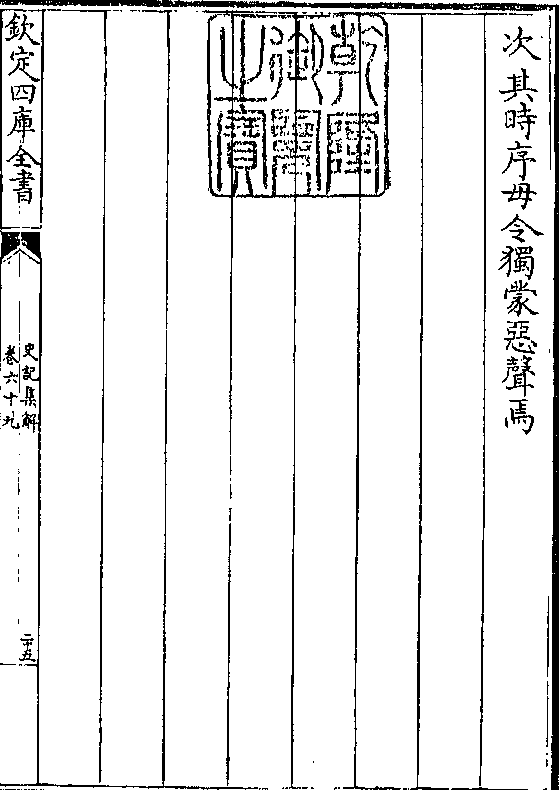 次其時序毋令獨蒙惡聲焉
乾隆
御覽
之寶
欽定四庫全書
史記集解
卷六十九
二十五